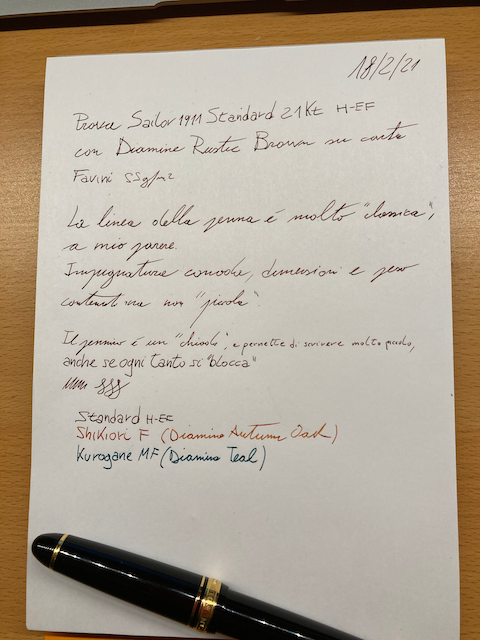 18/2/21
Prova Sailor 1911 Standard 21Kt H-EF
con Diamine Rustic Brown su carta
Favini 55g/m2
La linea della penna è molto "classica",
a mio parere.
Impugnatura comoda, dimensioni e peso
contenuti ma non "piccola".
Il pennino è un "chiodo", e permette di scrivere molto piccolo,
anche se ogni tanto si "blocca"
Standard H-EF
Shikiori F (Diamine Autumn Oak)
Kurogane MF (Diamine Teal)